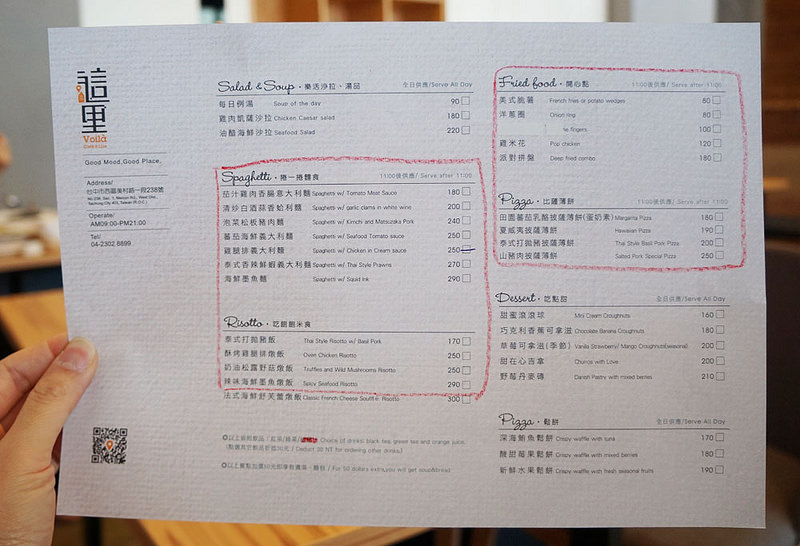 這里
Voilà
Café & Live
Good Mood, Good Place,
Address/
台中市西區美村路一段238號
Operate/
AM09:00-PM21:00
Tel/
04-2302 8899
Salad & Soup・樂活沙拉、湯品 全日供應/Serve All Day
每日例湯 Soup of the day 90
雞肉凱薩沙拉 Chicken Caesar salad 180
油醋海鮮沙拉 Seafood Salad 220
Spaghetti・捲一捲麵食 11:00後供應/ Serve after 11:00
茄汁雞肉香腸意大利麵 Spaghetti w/ Tomato Meat Sauce 180
清炒白酒蒜香蛤利麵 Spaghetti w/ garlic clams in white wine 200
泡菜松板豬肉麵 Spaghetti w/ Kimchi and Matsuzaka Pork 240
蕃茄海鮮義大利麵 Spaghetti w/ Seafood Tomato sauce 250
雞腿排義大利麵 Spaghetti w/ Chicken in Cream sauce 250
泰式香辣鮮蝦義大利麵 Spaghetti w/ Thai Style Prawns 270
海鮮墨魚麵 Spaghetti w/ Squid Ink 290
Risotto・吃飽飽米食
泰式打拋豬飯 Thai Style Risotto w/ Basil Pork 170
酥烤雞腿排燉飯 Oven Chicken Risotto 250
奶油松露野菇燉飯 Truffles and Wild Mushrooms Risotto 250
辣味海鮮墨魚燉飯 Spicy Seafood Risotto 290
法式海鮮舒芙蕾燉飯 Classic French Cheese Soufflé Risotto 300
Choice of drinks: black tea, green tea and orange juice.
/ Deduct 30 NT for ordering other drinks.)
/ For 50 dollars extra,you will get soup&bread
Fried food・開心點 11:00後供應/ Serve after 11:00
美式脆薯 French fries or potato wedges 80
洋蔥圈 Onion ring 80
fingers 100
雞米花 Pop chicken 120
派對拼盤 Deep fried combo 180
Pizza・比薩薄餅 11:00後供應/ Serve after 11:00
田園蕃茄乳酪披薩薄餅(蛋奶素) Margarita Pizza 180
夏威夷披薩薄餅 Hawaiian Pizza 190
泰式打拋豬披薩薄餅 Thai Style Basil Pork Pizza 200
山豬肉披薩薄餅 Salted Pork Special Pizza 250
Dessert・吃點甜 全日供應/ Serve All Day
甜蜜滾滾球 Mini Cream Croughnuts 160
巧克利香蕉可拿滋 Chocolate Banana Croughnuts 180
草莓可拿滋(季節) Vanilla Strawberry/ Mango Croughnuts(seasonal) 200
甜在心吉拿 Churros with Love 200
野莓丹麥磚 Danish Pastry with mixed berries 210
Pizza・鬆餅 全日供應/ Serve All Day
深海鮪魚鬆餅 Crispy waffle with tuna 170
酸甜莓果鬆餅 Crispy waffle with mixed berries 180
新鮮水果鬆餅 Crispy waffle with fresh seasonal fruits 190